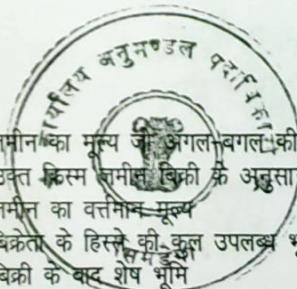 कार्यालय अनुमण्डल पदाधिकारी
जमीन का मूल्य जो अगल-बगल की
उक्त किस्म जमीन बिक्री के अनुसार
जमीन का वर्त्तमान मूल्य
बिक्रेता के हिस्से की कुल उपलब्ध
बिक्री के बाद शेष भूमि